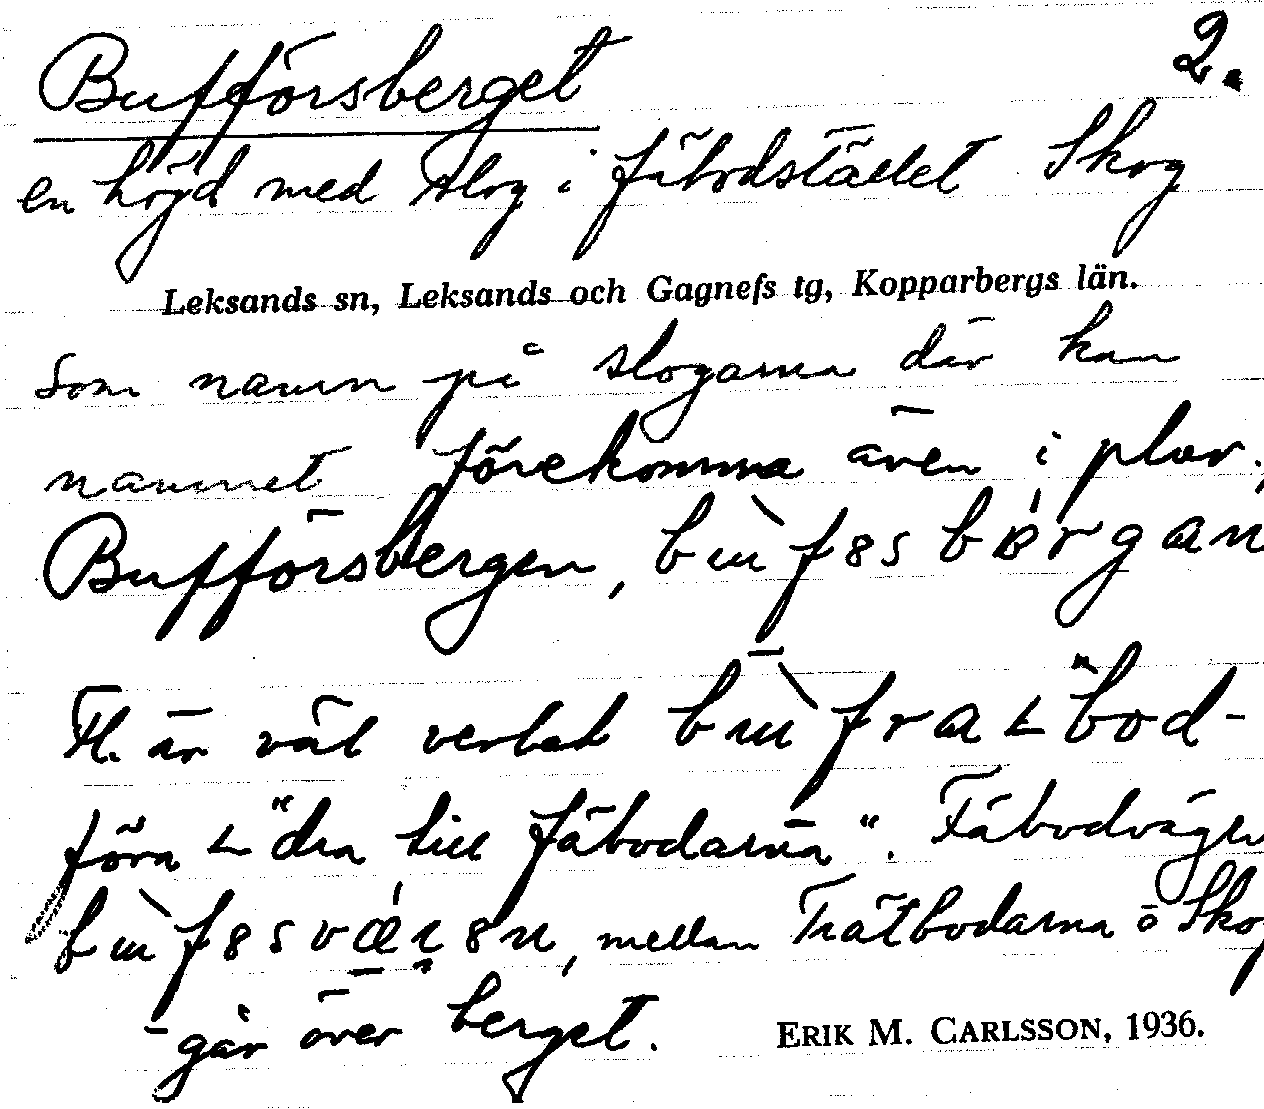 Bufförsberget 2.
en höjd med slog i fäbodstället Skog
Leksands sn, Leksands och Gagnefs tg, Kopparbergs län.
Som namn på slogarna där kan
namnet förekomma även i plur.,
Bufförsbergen,
F.l. är väl verbet "bod-
föra "dra till fäbodarna". Fäbodvägen
mellan Trätbodarna o Skog
går över berget. ERIK M. CARLSSON, 1936.